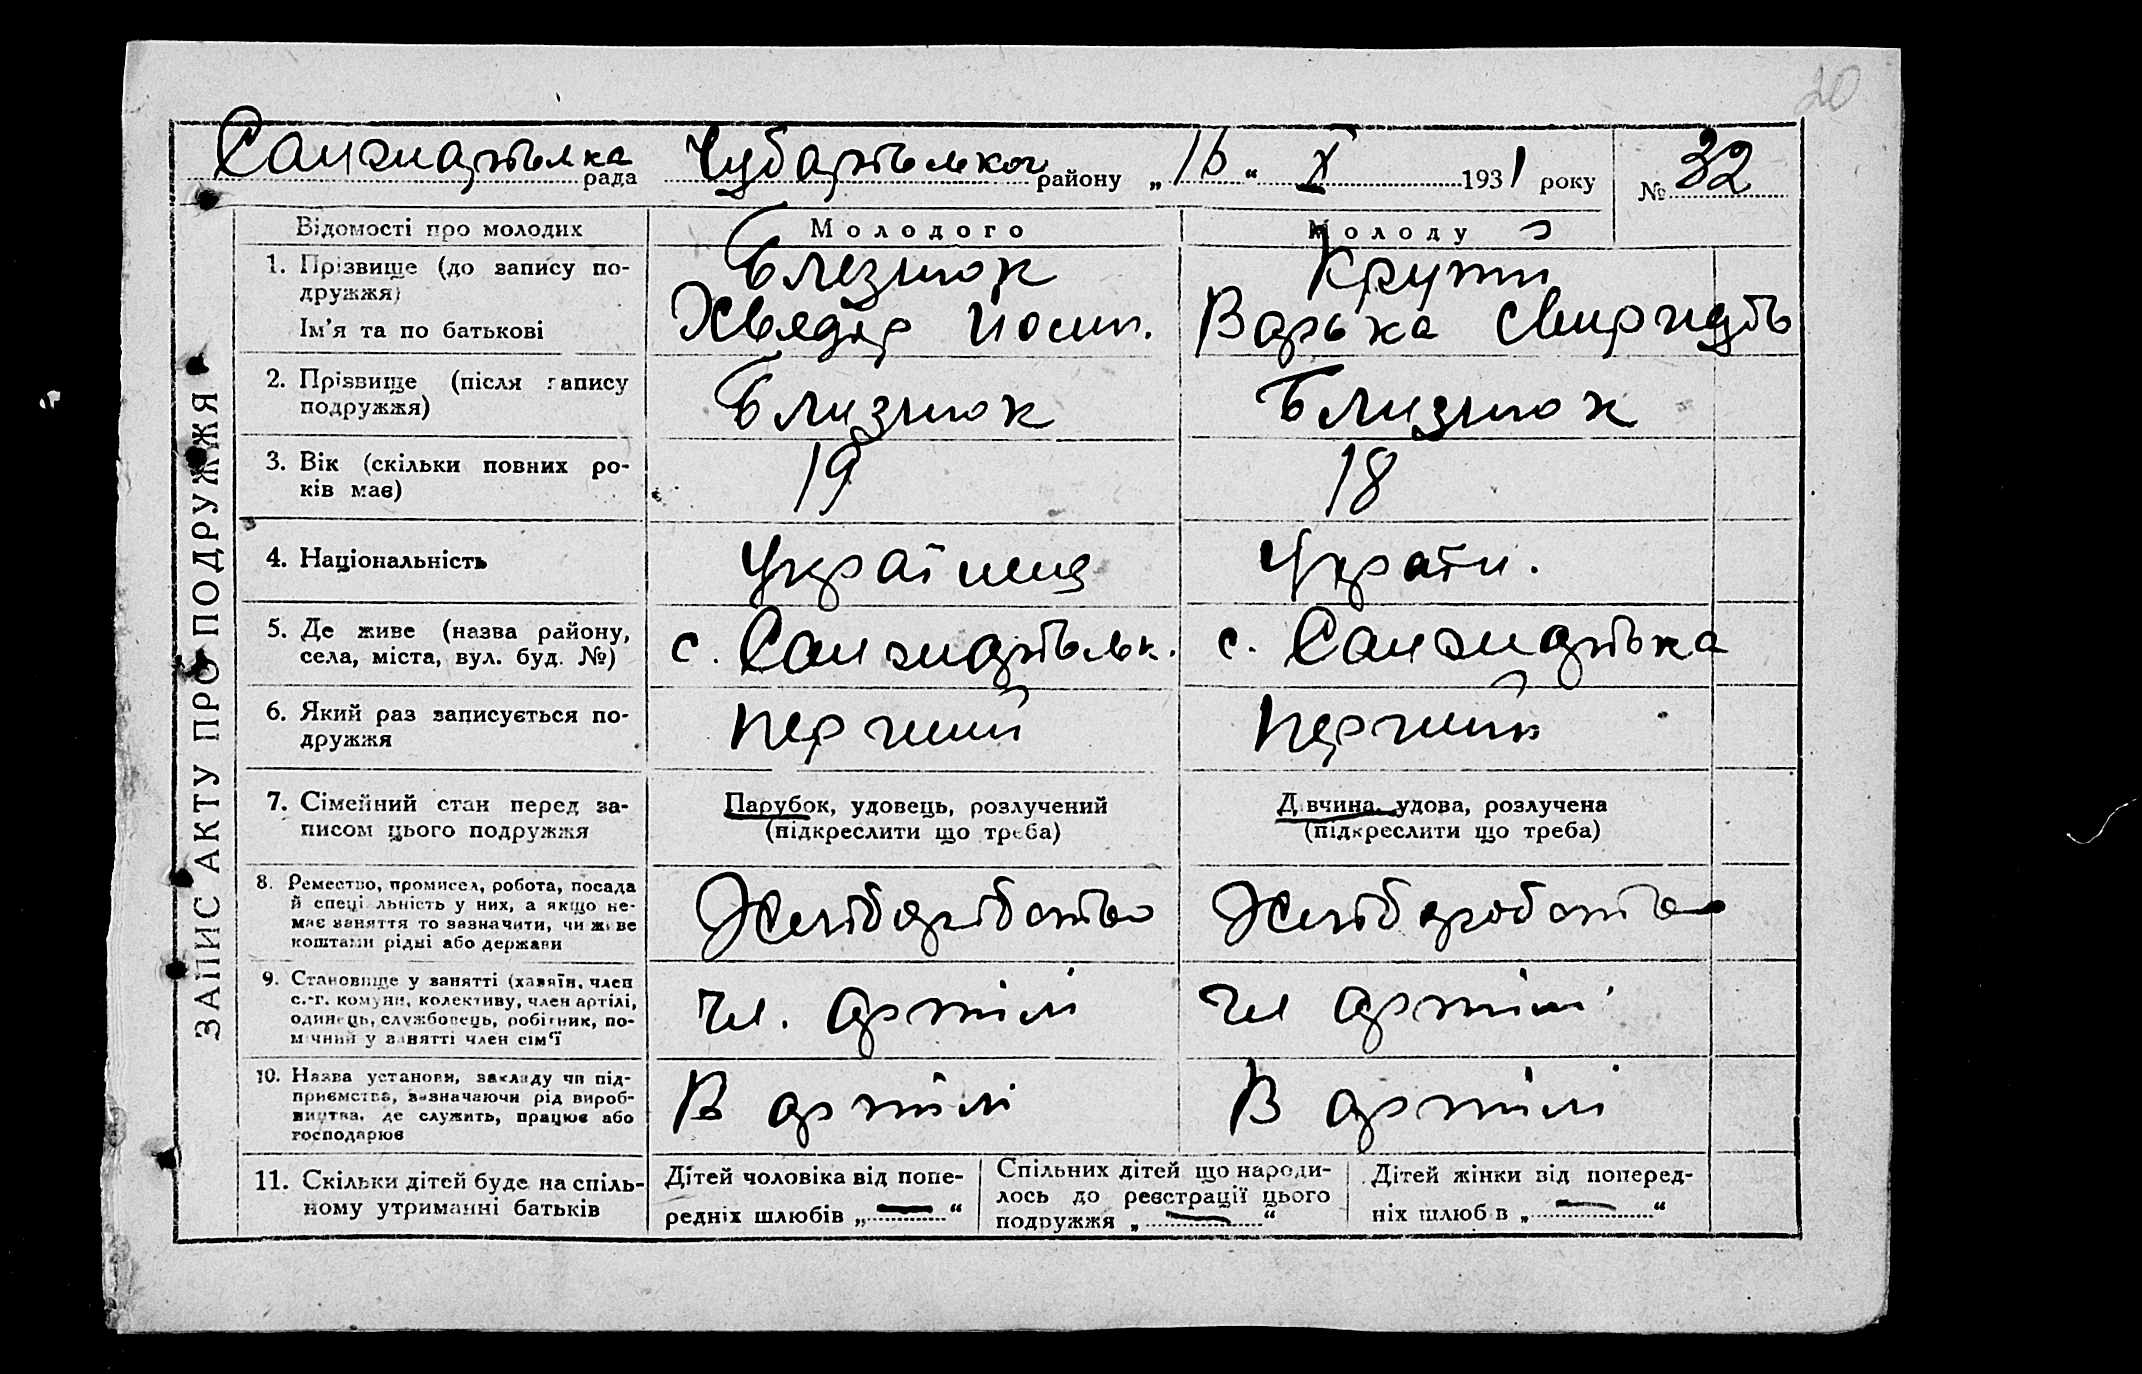 20
Санжарівська рада Чубарівського району „16“ X 1931 року № 32
ЗАПИС АКТУ ПРО ПОДРУЖЖЯ
Відомості про молодих Молодого Молоду
1. Прізвище (до запису по- Близнюк Крутий
дружжя)
Ім'я та по батькові Хведір Йосип. Варька Свиридів
2. Прізвище (після запису Близнюк Близнюк
подружжя)
3. Вік (скільки повних ро- 19 18
ків має)
4. Національність Українец Україн.
5. Де живе (назва району, с. с.
села, міста, вул. буд. №)
6. Який раз записується по- перший перший
дружжя
7. Сімейний стан перед за- Парубок, удовець, розлучений Дівчина, удова, розлучена
писом цього подружжя (підкреслити що треба) (підкреслити що треба)
8. Ремество, промисел, робота, посада
й спеціяльність у них, а якщо не- Хліборобство Хліборобство
має заняття то зазначити, чи живе
коштами рідні або держави
9. Становище у занятті (хазяїн, член
с.-г. комуни, колективу, член артілі, чл. артілі чл артілі
одинець, службовець, робітник, по-
мічний у занятті член сім'ї
10. Назва установи, закладу чи під-
приємства, зазначаючи рід вироб- В артілі В артілі
ництва, де служить, працює або
господарює
11. Скільки дітей буде на спіль- Дітей чоловіка від попе- Спільних дітей що народи- Дітей жінки від поперед-
ному утриманні батьків редніх шлюбів „—“ лось до реєстрації цього ніх шлюбів „—“
подружжя „—“